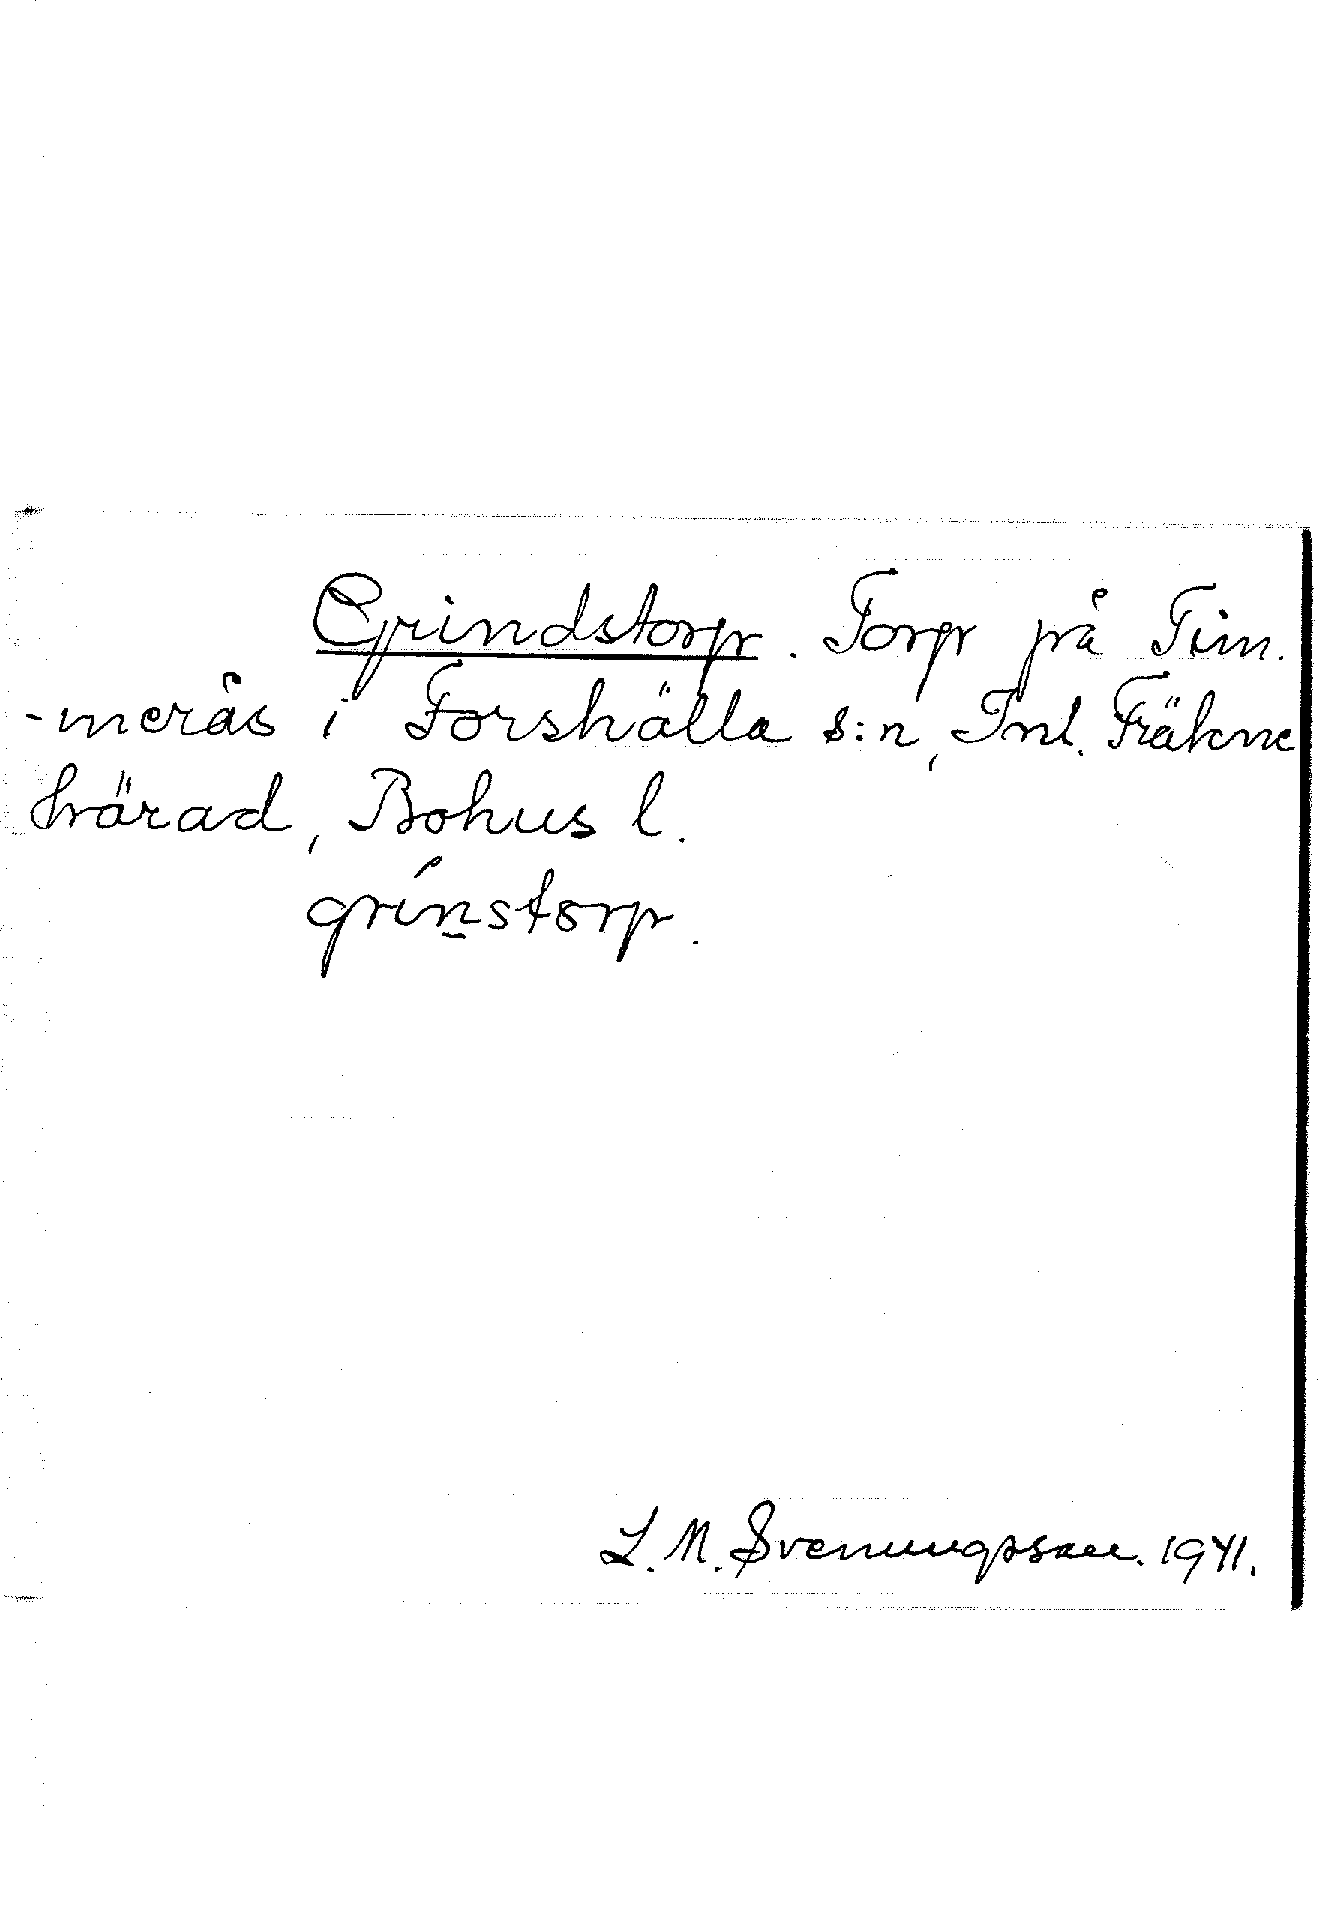 Grindstorp. Torp på Tim.
-merås i Forshälla s:n, Inl. Fräkne
härad, Bohus l.
grínstorp.
L. M. Svenungsson. 1941.